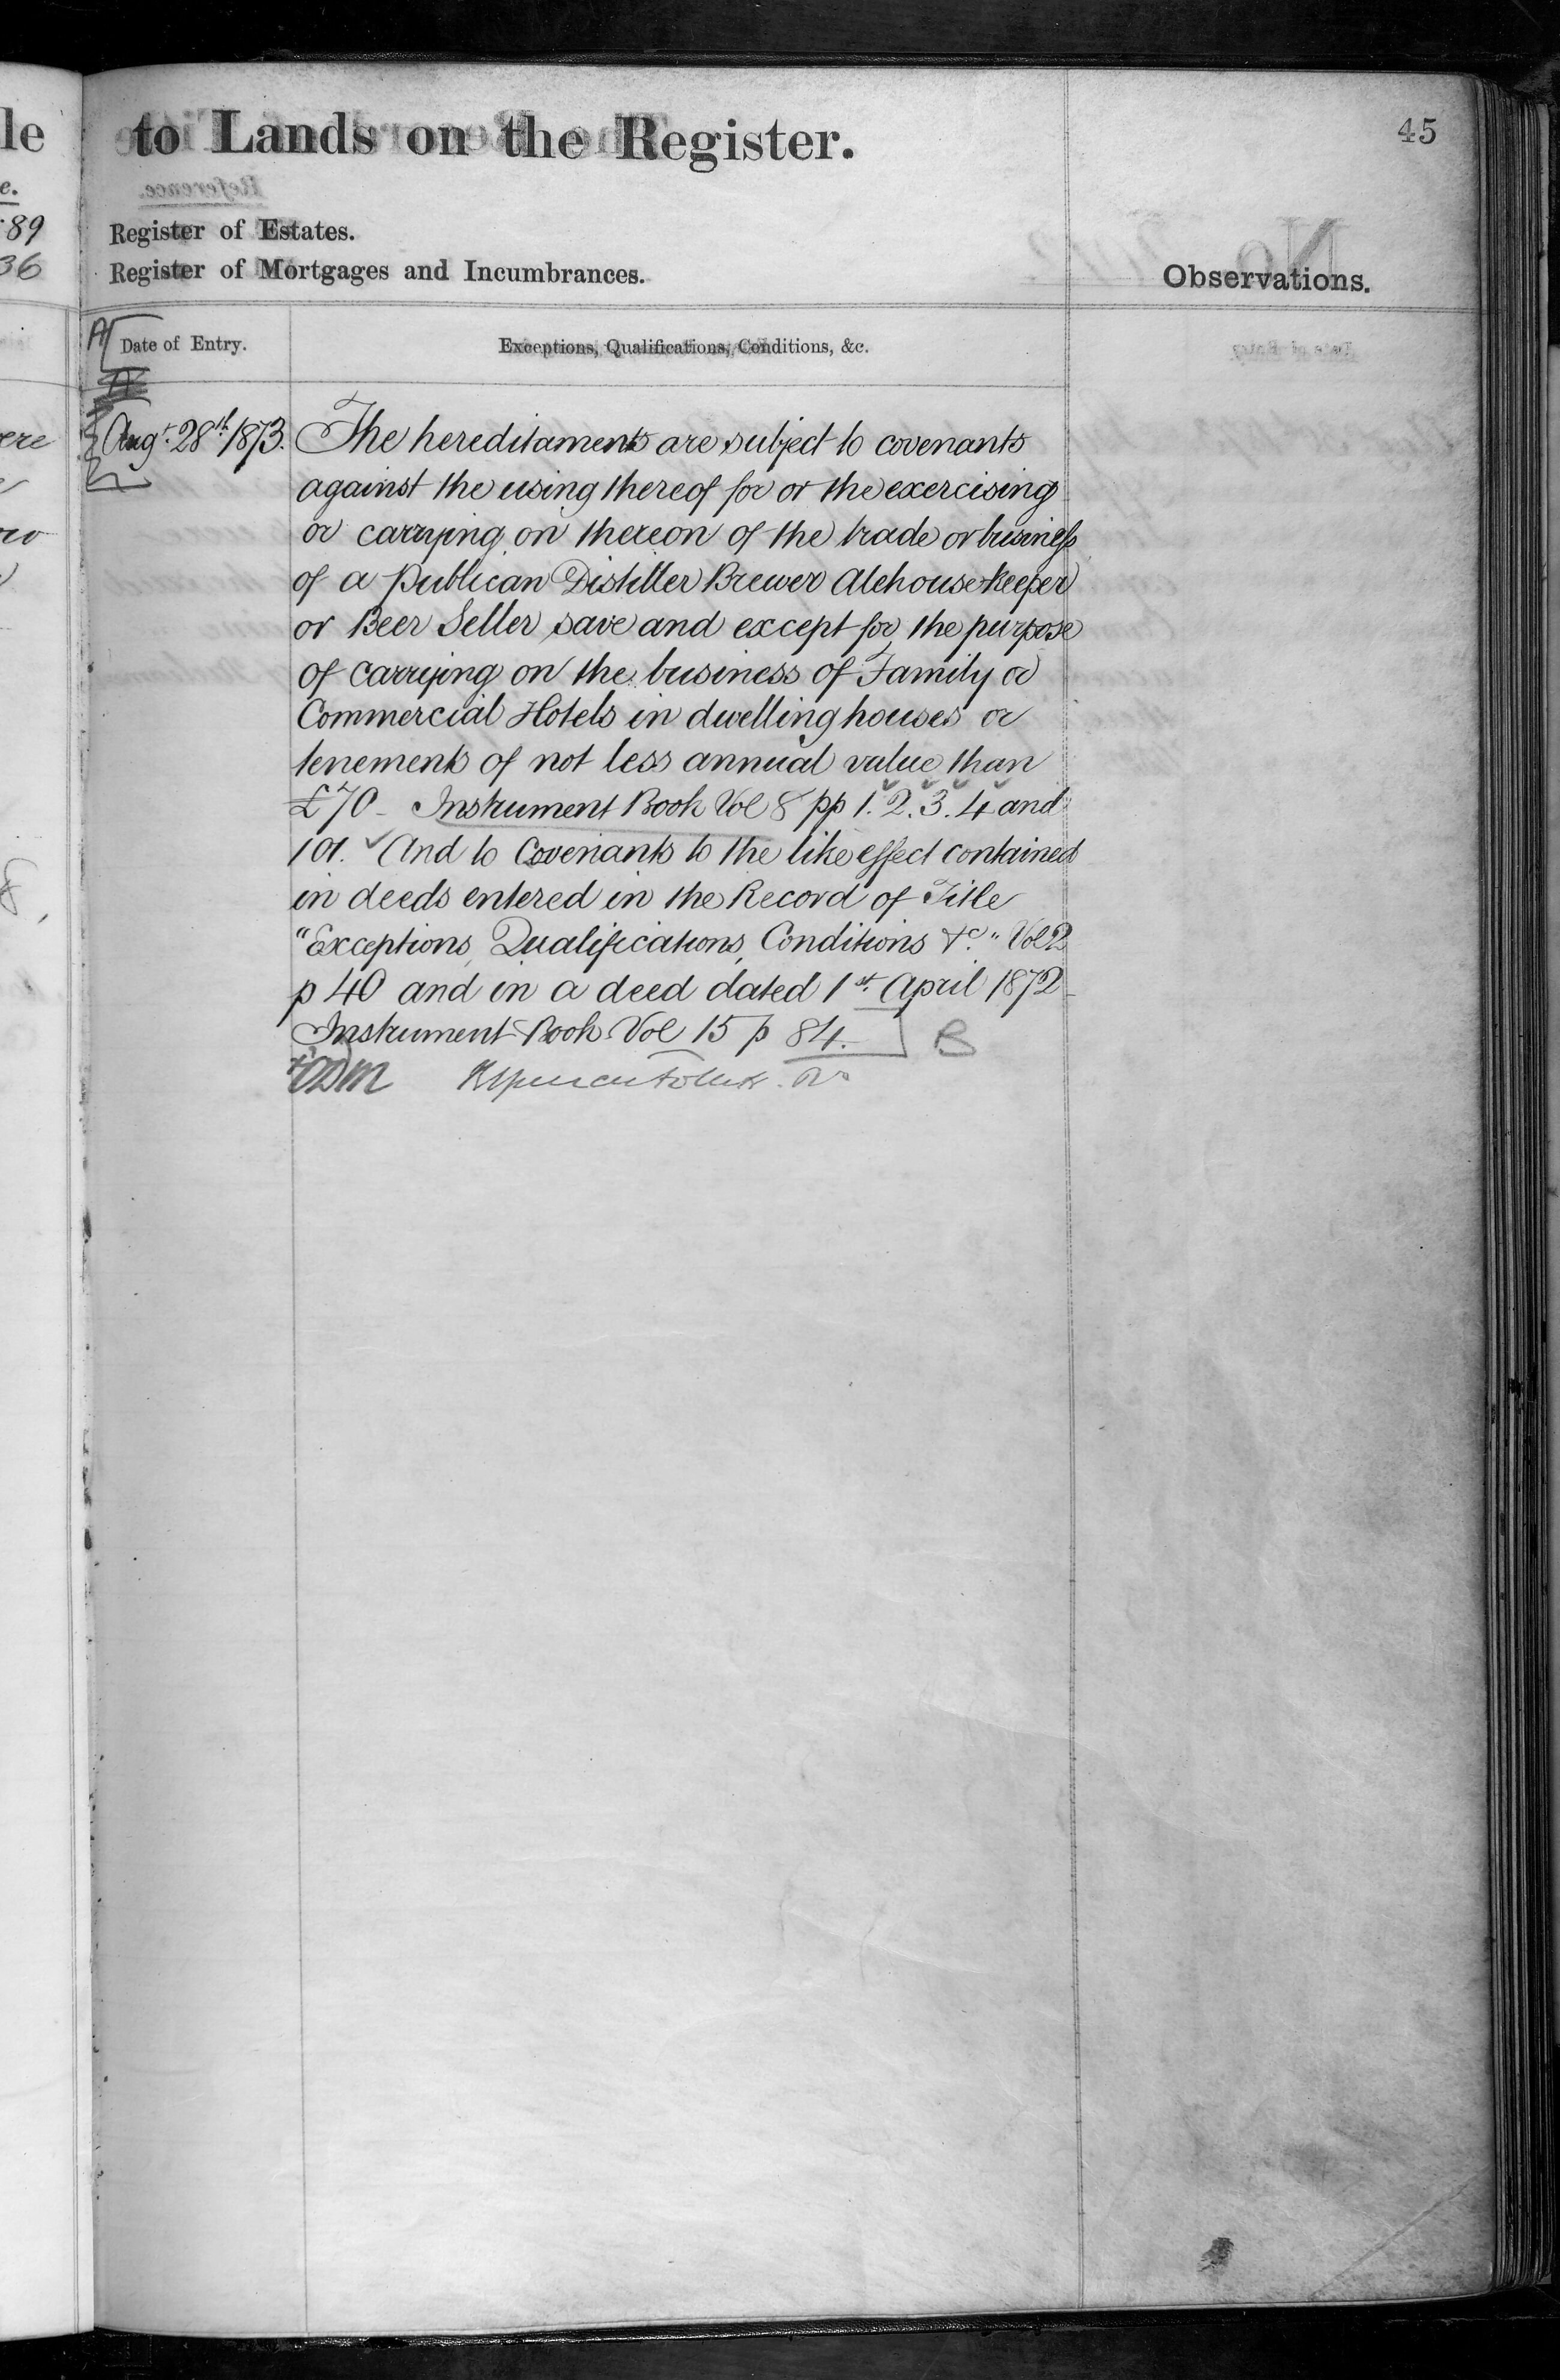 le
to Lands on the Register.
45
e.
89
36
Register of Estates.
Register of Mortgages and Incumbrances.
Observations.
A
Date of Entry.
Exceptions, Qualifications, Conditions, &c.
Augt. 28th. 1873.
The hereditaments are subject to covenants
against the using thereof for or the exercising
or carrying on thereon of the trade or business
of a Publican Distiller Brewer Alehousekeeper
or Beer Seller save and except for the purpose
of carrying on the business of Family or
Commercial Hotels in dwelling houses or
tenements of not less annual value than
£70 - Instrument Book Vol 8 pp 1. 2. 3. 4 and
101. And to Covenants to the like effect contained
in deeds entered in the Record of Title
"Exceptions, Qualifications, Conditions &c." Vol 2
p 40 and in a deed dated 1st. April 1872
Instrument Book Vol 15 p 84.
B